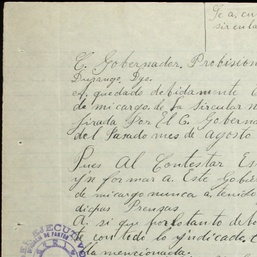 Te a. cu
circula
C. Gobernador Provision
Durango, Dgo.
A. quedado debidamente
de mi cargo. de la sircular n
jirada Por El C. Goberna
del Pasado mes de agosto
Pues Al Contestar Es
ynformar a Este Gobi
de mi cargo nunca a tenido
dichas Prensas
A. si que por lo tanto debo
con todo lo yndicado. C
lla mencionada.